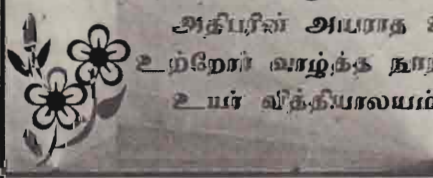 அதிபரின் அயராத
உற்றோர் வாழ்த்த
உயர் வித்தியாலயம்